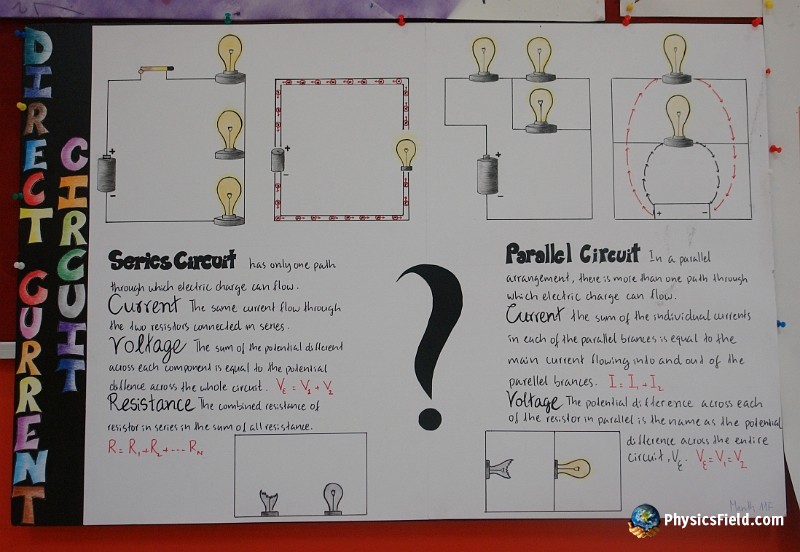 DIRECT CURRENT
CIRCUIT
+
-
+
-
+
-
+ -
Series Circuit has only one path
through which electric charge can flow.
Current The same current flow through
the two resistors connected in series.
Voltage The sum of the potential different
across each component is equal to the potential
diffence across the whole circuit. Vε = V1 + V2
Resistance The combined resistance of
resistor in series in the sum of all resistance.
R = R1 + R2 + ---- RN
?
Parallel Circuit In a parallel
arrangement, there is more than one path through
which electric charge can flow.
Current the sum of the individual currents
in each of the parallel brances is equal to the
main current flowing into and out of the
parellel brances. I = I1 + I2
Voltage The potential difference across each
of the resistor in parallel is the name as the potential
difference across the entire
circuit, Vε. Vε = V1 = V2
11F
PhysicsField.com